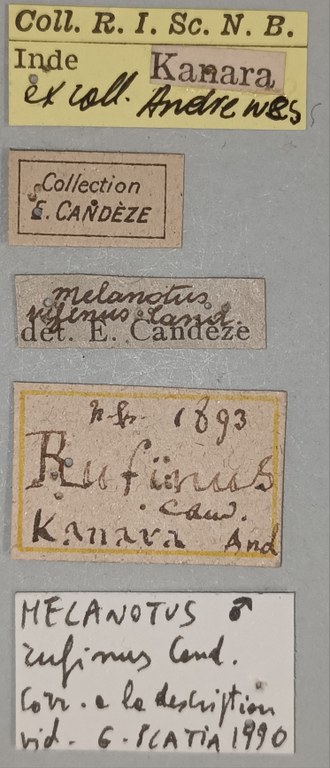 Coll. R. I. Sc. N. B.
Inde Kanara
ex coll. Andrewes
Collection
E. CANDÈZE
melanotus
rufinus Cand.
det. E. Candèze
n. sp. 1893
Rufinus
Cand.
Kanara And
MELANOTUS ♂
rufinus Cand.
Corr. a la description
vid. G. PLATIA 1990